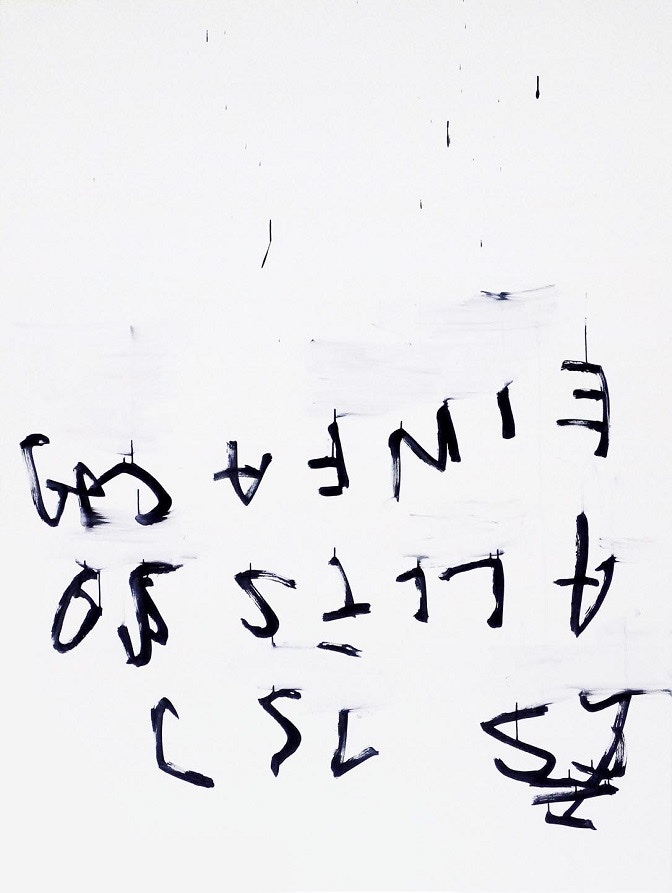 ES IST
ALLES SO
EINFACH